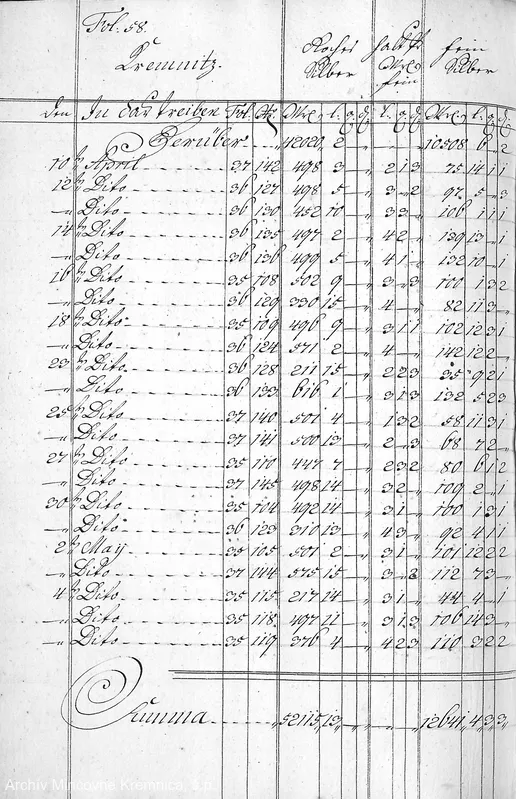 Fol. 58.
Kremnitz.
Roches Silber
halt Mrk fein
fein Silber
den In das treiben Fol. No. Mrk. l. q. d. l. q. d. Mrk. l. q. d.
Herüber 42020 2 10508 6 2
10 April 37 142 498 3 2 1 3 75 14 1 1
12 Dito 36 127 498 5 3 2 97 5 3
Dito 36 130 452 10 3 3 106 1 1 1
14 Dito 36 135 497 2 4 2 139 13 1
Dito 36 136 499 5 4 1 132 10 1
16 Dito 35 108 502 9 3 3 100 1 3 2
Dito 36 129 330 15 4 82 11 3
18 Dito 35 109 496 9 3 1 1 102 12 3 1
Dito 36 124 571 2 4 142 12 2
23 Dito 36 128 211 15 2 2 3 35 9 2 1
Dito 36 133 616 1 3 1 3 132 5 2 3
25 Dito 37 140 501 4 1 3 2 58 11 3 1
Dito 37 141 500 13 2 3 68 7 2
27 Dito 35 110 447 7 2 3 2 80 6 1 2
Dito 37 145 498 14 3 2 109 2 1
30 Dito 35 104 492 14 3 1 100 1 3 1
Dito 36 123 310 13 4 3 92 4 1 1
2 May 35 105 501 2 3 1 101 12 2 2
Dito 37 144 575 15 3 112 7 3
4 Dito 35 115 217 14 3 1 44 4 1
Dito 35 118 497 11 3 1 3 106 14 3
Dito 35 119 376 4 4 2 3 110 3 2 2
Summa 52115 13 12641 4 3 3
Archív Mincovne Kremnica, š.p.